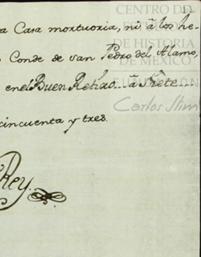 a Casa mortuoria, ni â los he-
Conde de san Pedro del Alamo,
en el Buen Retiro... â siete....
cincuenta y tres.
Rey.
CENTRO DE
DE HISTORIA
DE MEXICO
Carlos Slim